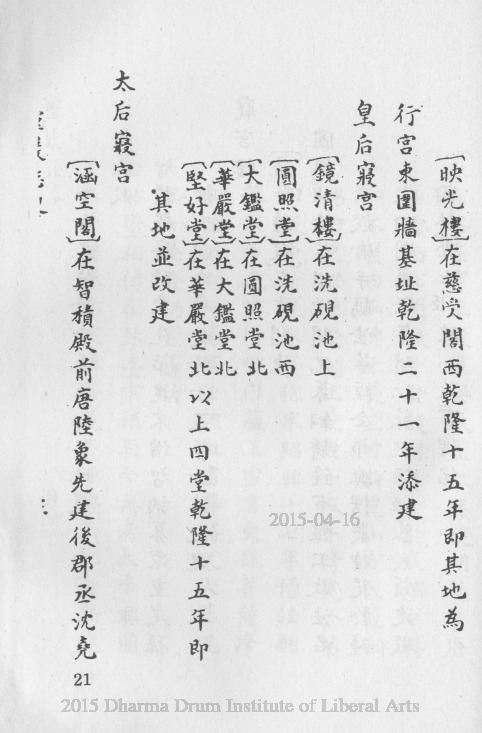 〔映光樓〕在慈受閣西乾隆十五年即其地為
行宮東圍牆基址乾隆二十一年添建
皇后寢宮
〔鏡清樓〕在洗硯池上
〔圓照堂〕在洗硯池西
〔大鑑堂〕在圓照堂北
〔華嚴堂〕在大鑑堂北
〔堅好堂〕在華嚴堂北以上四堂乾隆十五年即
其地並改建
太后寢宮
〔涵空閣〕在智積殿前唐陸象先建後郡丞沈堯
21
2015-04-16
2015 Dharma Drum Institute of Liberal Arts